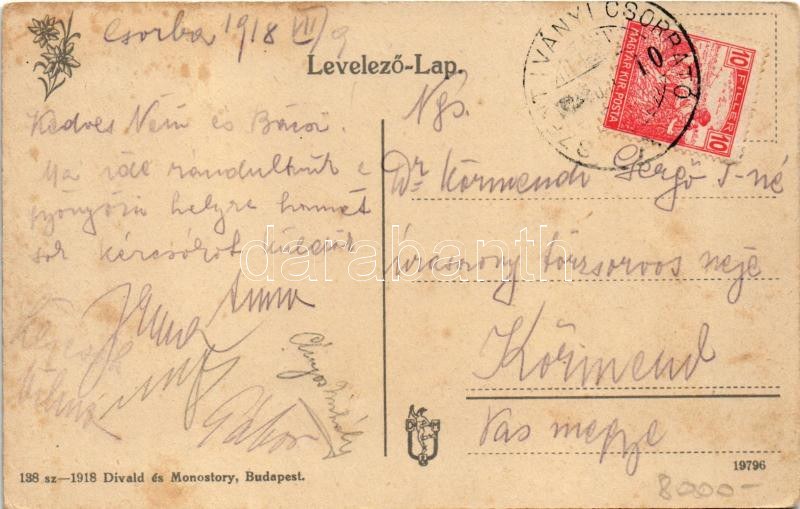 Csorba 1918 VII/9
Levelező-Lap.
SZENTIVÁNYI CSORBATÓ
10
MAGYAR KIR. POSTA
10 FILLÉR 10
Kedves Néni és Bácsi!
Ma ide rándultunk e
gyönyörű helyre honnét
sok kézcsókot küldünk
Janna Anna
Vilma
Gábor
Mihály
Ngs.
Dr Körmendi Gergő I-né
úrasszony törzsorvos neje
Körmend
Vas megye
darabanth
D M
138 sz—1918 Divald és Monostory, Budapest.
19796
8000-